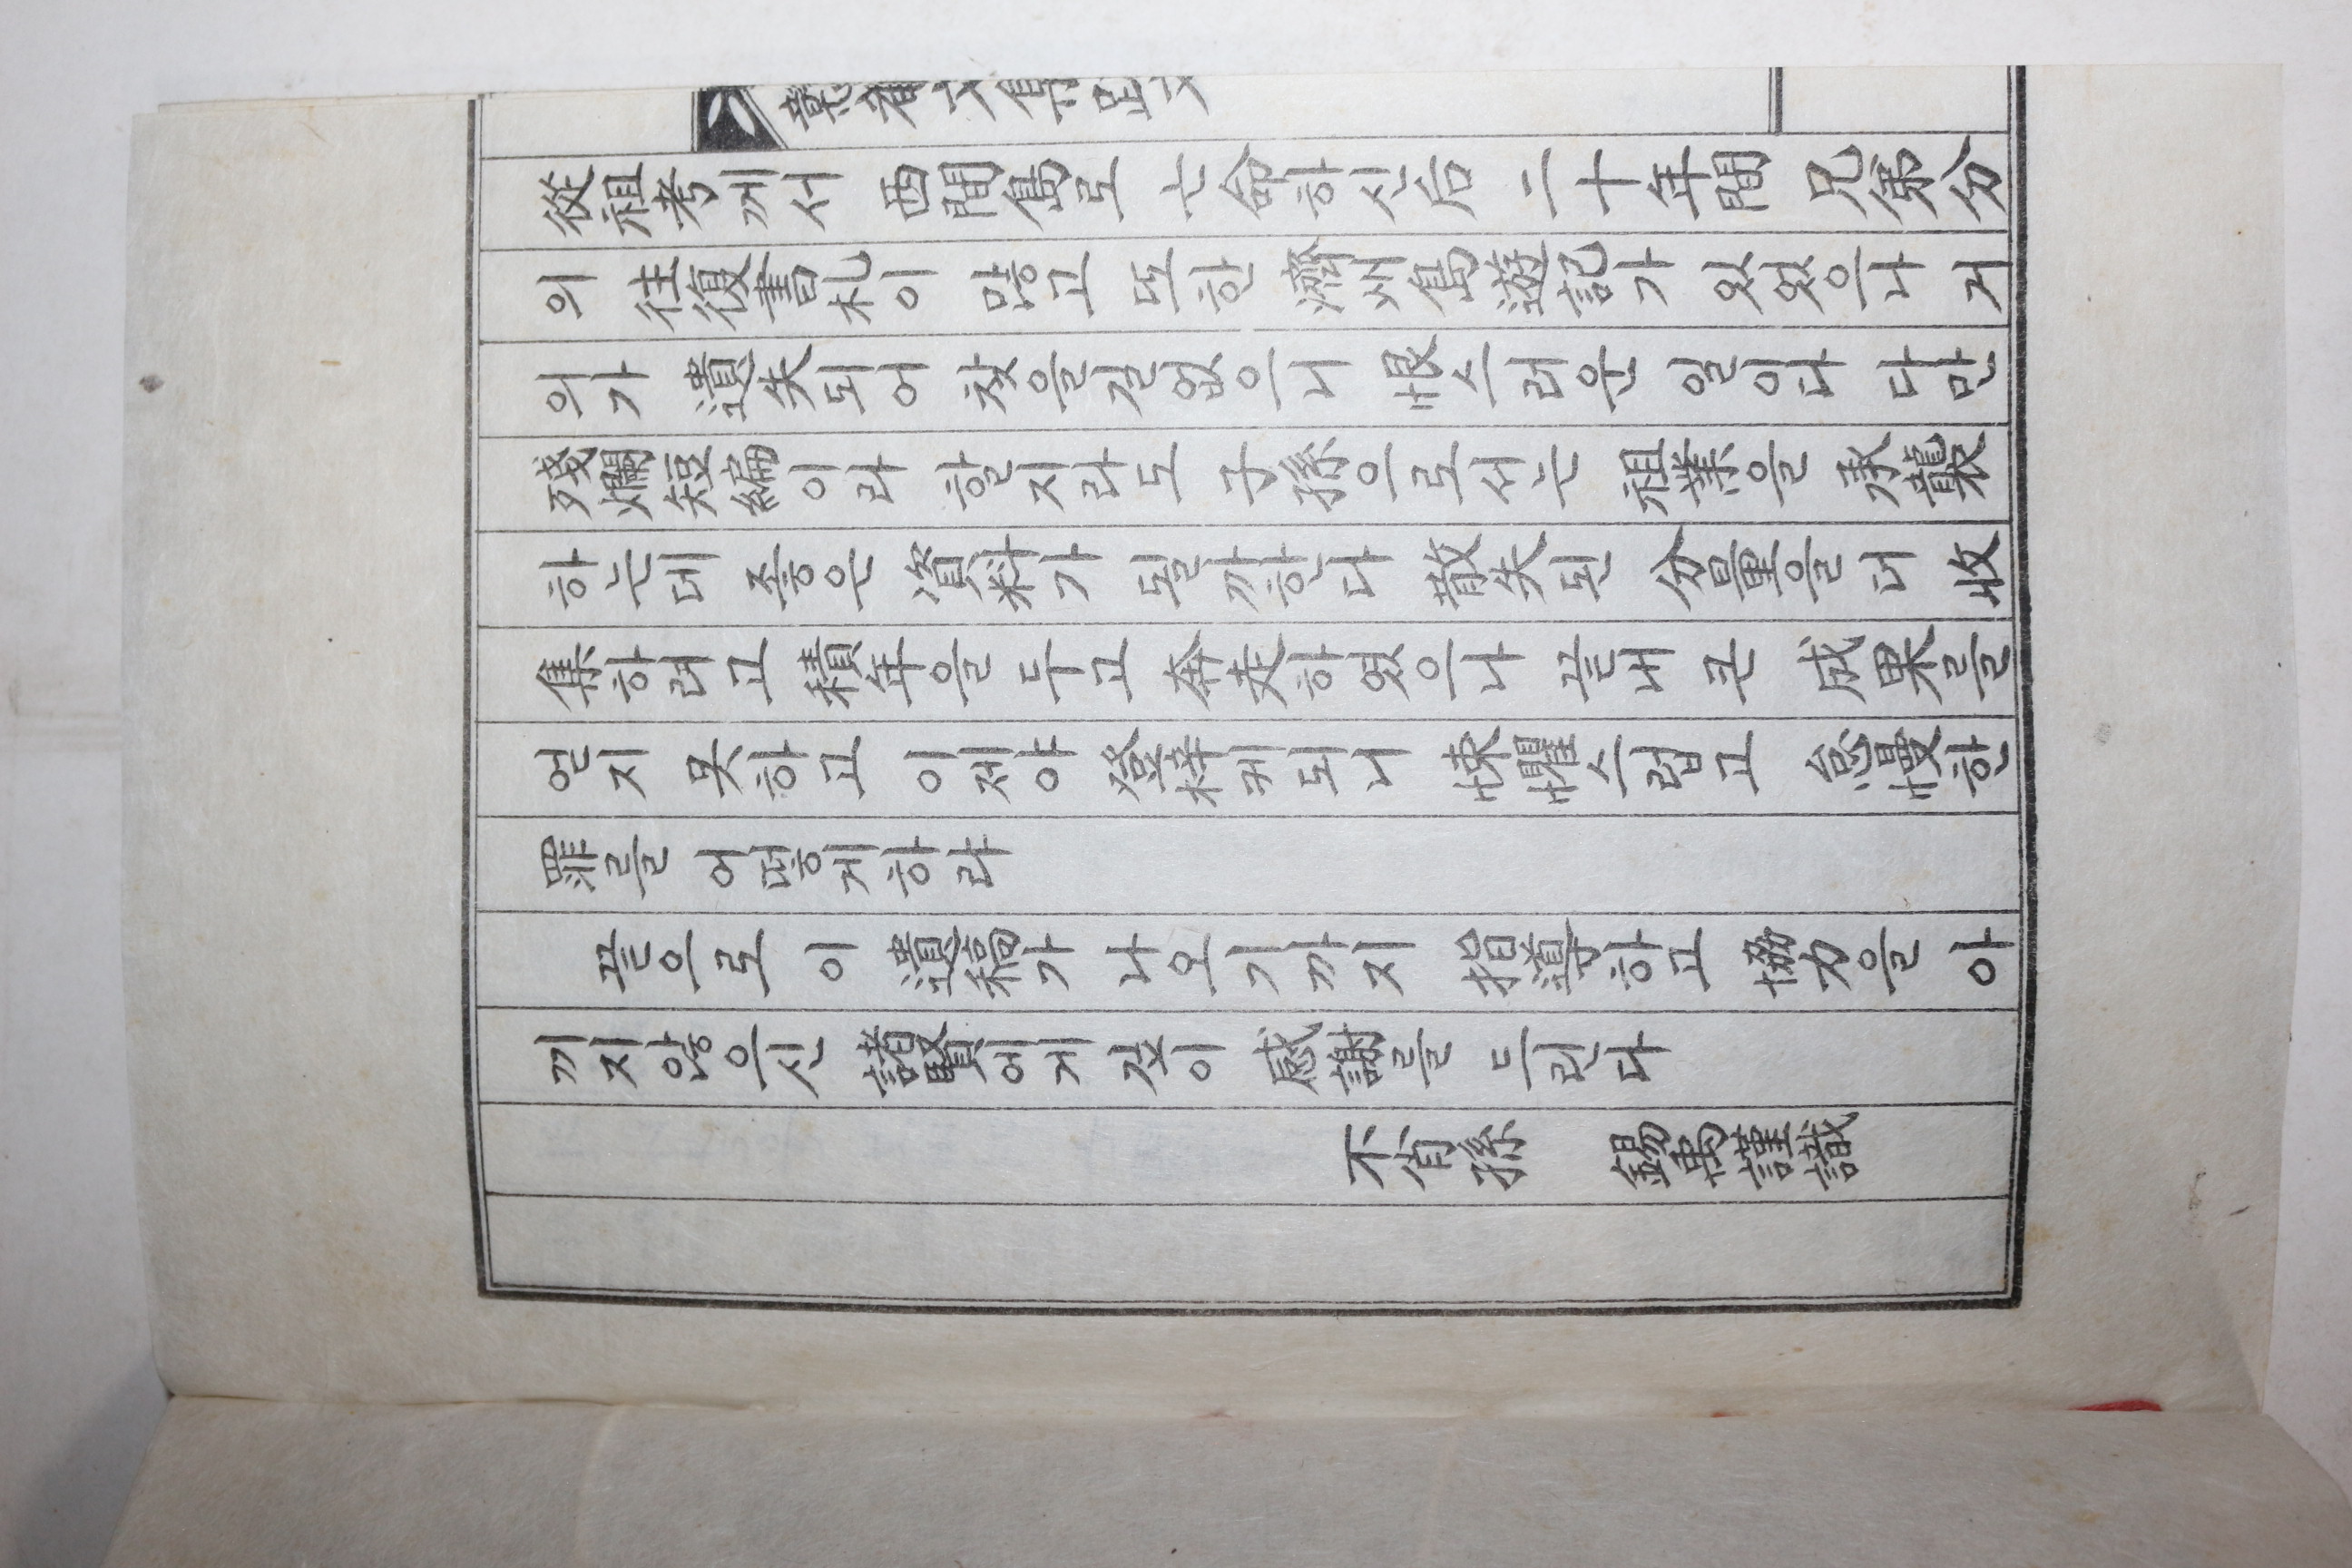 從祖考께서 西間島로 亡命하신后 二十年間 兄弟分
의 往復書札이 많고 또한 濟州島遊記가 있었으나 거
의가 遺失되어 찾을길없으니 恨스러운 일이나 다만
殘爛短編이라 할지라도 子孫으로서는 祖業을 承襲
하는데 좋은 資料가 될가한다 散失된 分量을 더 收
集하려고 積年을 두고 奔走하였으나 끝내 큰 成果를
얻지 못하고 이제야 發梓케되니 悚懼스럽고 怠慢한
罪를 어떻게하랴
끝으로 이 遺稿가 나오기까지 指導하고 協力을 아
끼지않으신 諸賢에게 깊이 感謝를 드린다
不肖孫 錫萬謹識